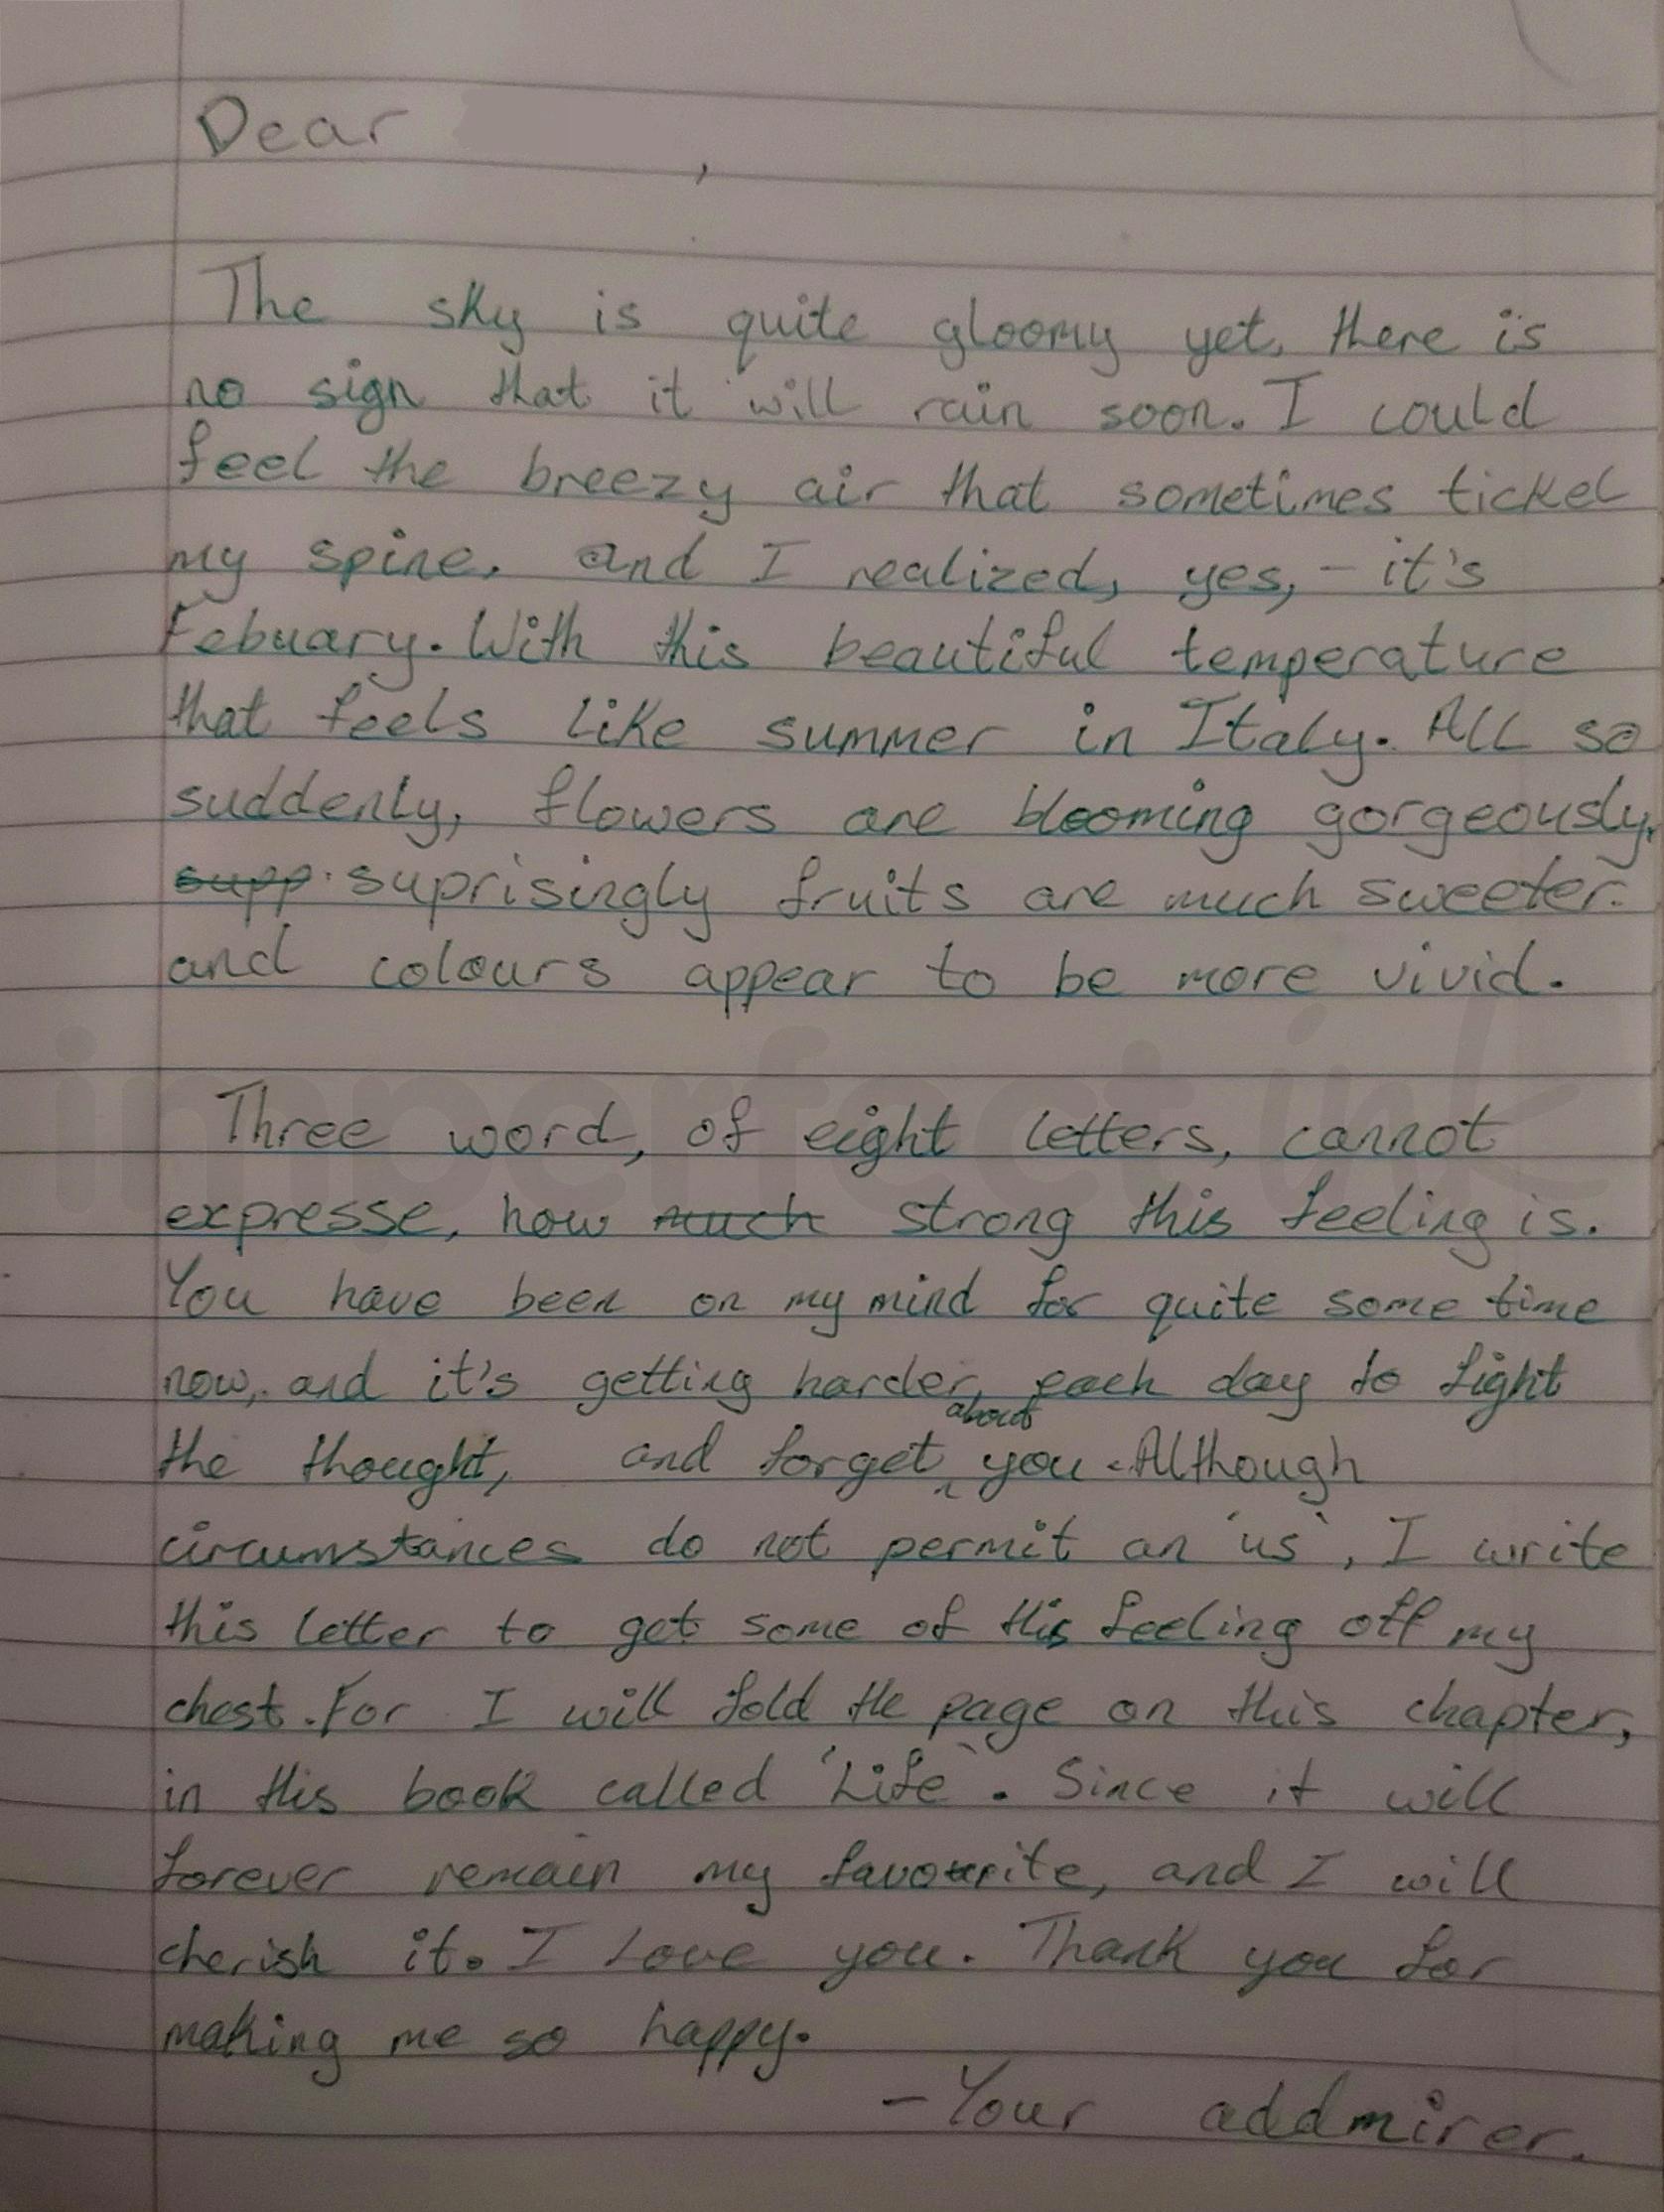 Dear ,
The sky is quite gloomy yet, there is
no sign that it will rain soon. I could
feel the breezy air that sometimes tickel
my spine, and I realized, yes, - it's
Febuary. With this beautiful temperature
that feels like summer in Italy. All so
suddenly, flowers are blooming gorgeously,
supp. suprisingly fruits are much sweeter.
and colours appear to be more vivid.
imperfect ink
Three word, of eight letters, cannot
expresse, how much strong this feeling is.
You have been on my mind for quite some time
now, and it's getting harder, each day to fight
the thought, and forget about you. Although
circumstances do not permit an 'us', I write
this letter to get some of this feeling off my
chest. For I will fold the page on this chapter,
in this book called 'Life'. Since it will
forever remain my favourite, and I will
cherish it. I love you. Thank you for
making me so happy.
- Your addmirer.